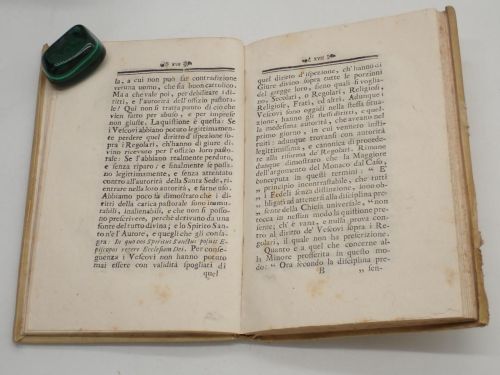 XVI
la, a cui non può far contradizione
veruna uomo, che sia buon cattolico.
Ma a che vale poi, per debilitare i di-
ritti, e l'autorità dell' offizio pastora-
le? Qui non si tratta punto di ciò che
vien fatto per abuso, e per imprese
non giuste. La quistione è questa: Se
i Vescovi abbiano potuto legittimamen-
te perdere quel diritto d'ispezione so-
pra i Regolari, ch'hanno di giure di-
vino ricevuto per l'offizio loro pasto-
rale: Se l'abbiano realmente perduto,
e senza riparo; e finalmente se possa-
no legittimamente, e senza attentato
contro all'autorità della Santa Sede, ri-
entrare nella loro autorità, e farne uso.
Abbiamo poco fa dimostrato che i di-
ritti della carica pastorale sono immu-
tabili, inalienabili, e che non si posson
prescrivere, perchè derivano da una
fonte del tutto divina; e lo Spirito San-
to n'è l'Autore, e quegli che gli consa-
gra: In quo vos Spiritus Sanctus posuit E-
piscopos regere Ecclesiam Dei. Per conse-
guenza i Vescovi non hanno potuto
mai essere con validità spogliati di
quel
XVII
quel diritto d'ispezione, ch'hanno di
Giure divino sopra tutte le porzioni
del gregge loro, sieno quali si voglia-
no, Secolari, o Regolari, Religiosi,
Religiose, Frati, ed altri. Adunque i
Vescovi sono oggidì nella stessa situa-
zione, hanno la stessa qualità, e
la medesima autorità, che aveano nel
primo giorno, in cui vennero istitui-
ti: adunque trovansi con autorità
legittimissima, e canonica di procede-
re alla riforma de' Regolari. Rimane
adunque dimostrato che la Maggiore
dell' argomento del Monaco dal Caso,
conceputa in questi termini: " E'
" principio incontrastabile, che tutti
" i Fedeli senza distinzione, sono ob-
" bligati ad attenersi alla disciplina pre-
" sente della Chiesa universale, " non
tocca in nessun modo la quistione presen-
te, ch'è trattata; e nulla prova con-
tro al diritto de' Vescovi sopra i Re-
golari, il quale non ha prescrizione.
Quanto è a quel che concerne al-
la Minore profferita in questo mo-
do: " Ora secondo la disciplina pre-
B " sen-